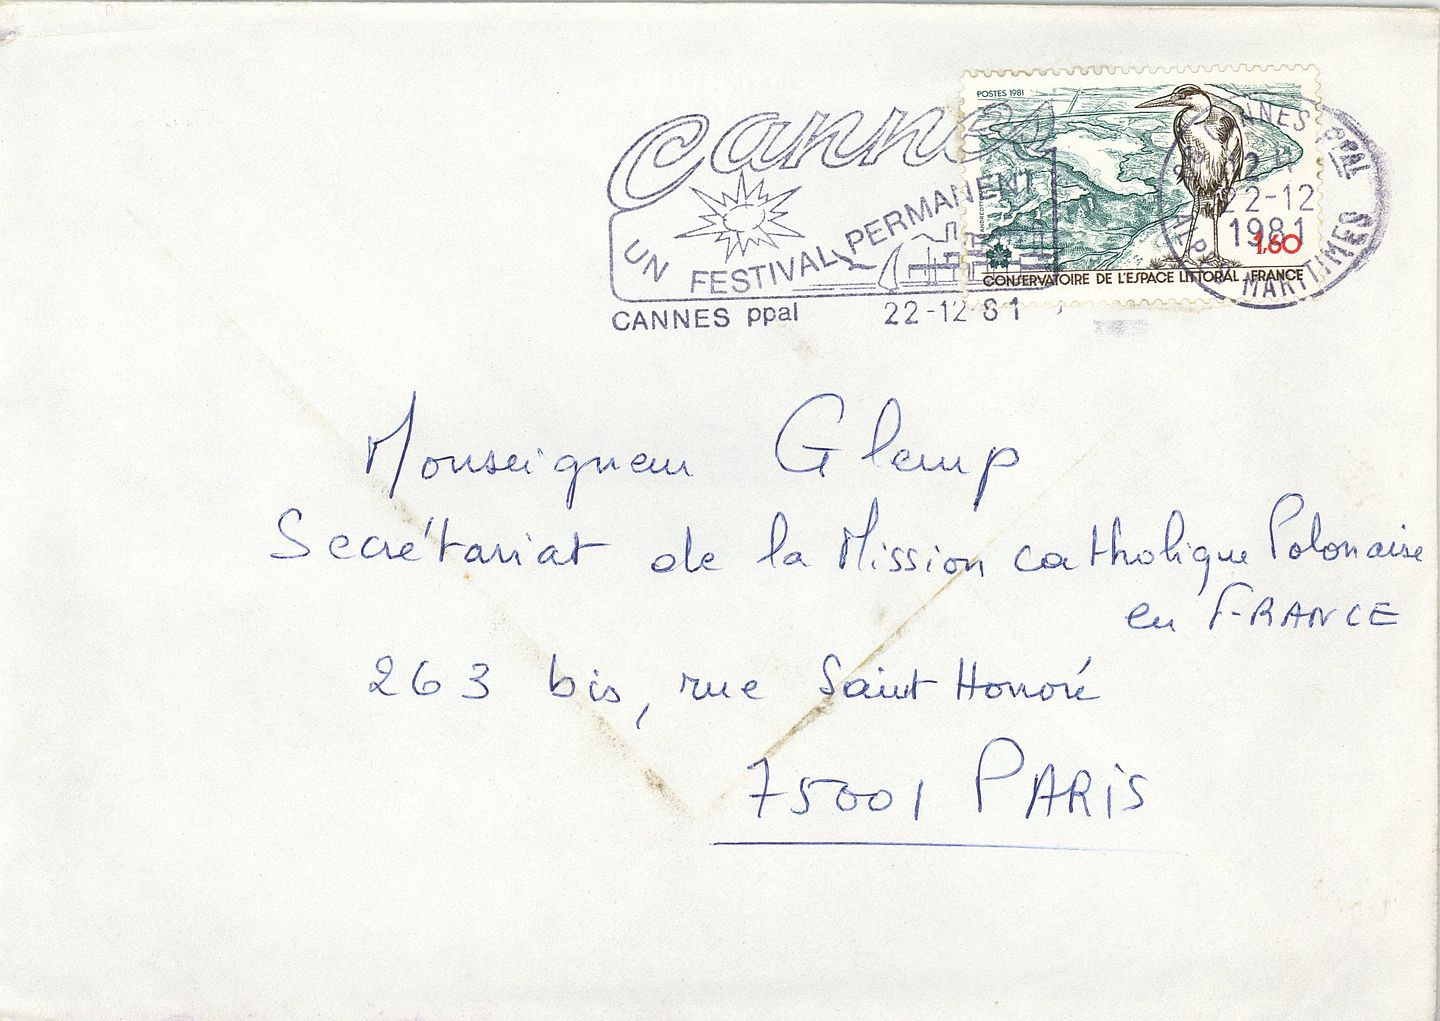 POSTES 1981
cannes
UN FESTIVAL PERMANENT
CANNES ppal 22-12-81
CANNES PPAL
22-12
1981
ALPES MARITIMES
1,60
CONSERVATOIRE DE L'ESPACE LITTORAL FRANCE
Monseigneur Glemp
Secrétariat de la Mission catholique Polonaise
en FRANCE
263 bis, rue Saint Honoré
75001 PARIS